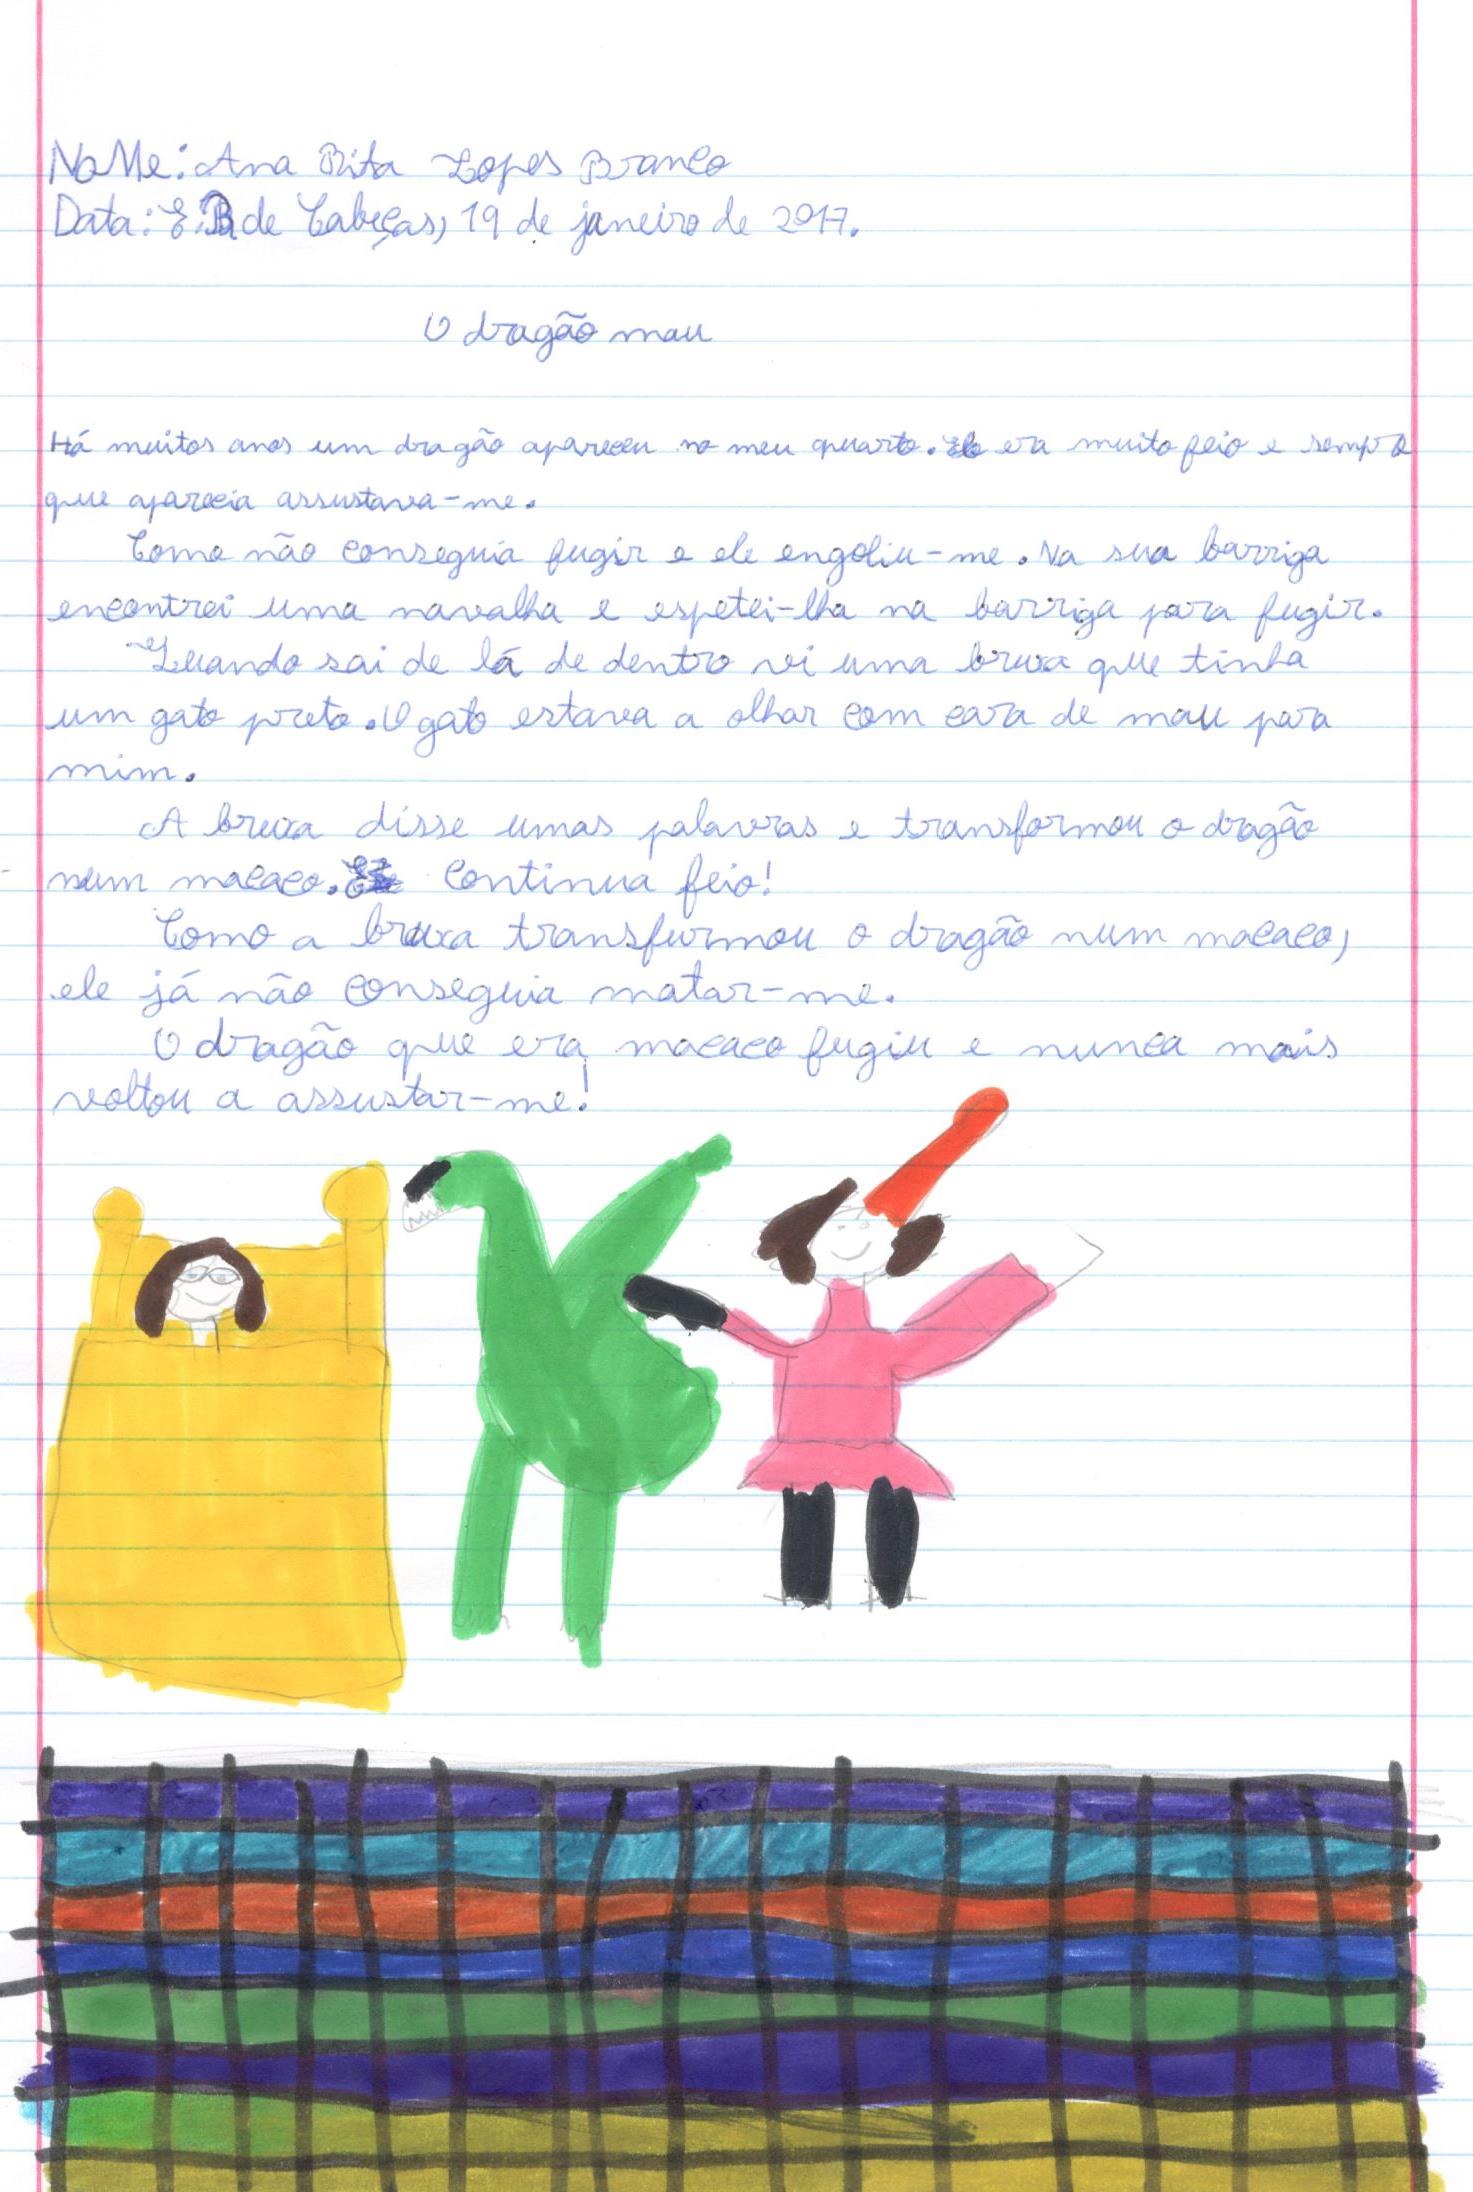 NoMe: Ana Rita Lopes Branco
Data: E.B. de Cabeças, 19 de janeiro de 2017.
O dragão mau
Há muitos anos um dragão apareceu no meu quarto. Ele era muito feio e sempre
que aparecia assustava-me.
Como não conseguia fugir e ele engoliu-me. Na sua barriga
encontrei uma navalha e espetei-lha na barriga para fugir.
Quando sai de lá de dentro vi uma bruxa que tinha
um gato preto. O gato estava a olhar com cara de mau para
mim.
A bruxa disse umas palavras e transformou o dragão
num macaco. continua feio!
Como a bruxa transfurmou o dragão num macaco,
ele já não conseguia matar-me.
O dragão que era macaco fugiu e nunca mais
voltou a assustar-me!